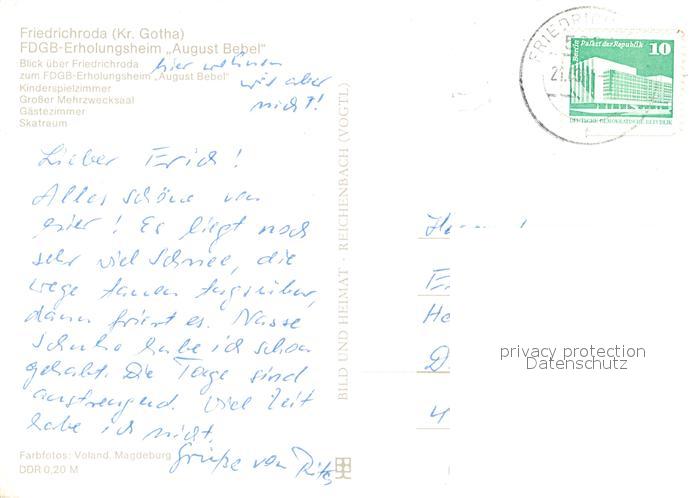 Friedrichroda (Kr. Gotha)
FDGB-Erholungsheim „August Bebel"
Blick über Friedrichroda
zum FDGB-Erholungsheim „August Bebel"
Kinderspielzimmer
Großer Mehrzwecksaal
Gästezimmer
Skatraum
hier wohnen
wir aber
nicht!
Lieber Erich!
Alles schöne von
hier! Es liegt noch
sehr viel Schnee, die
Wege tauen tagsüber,
dann friert es. Nasse
Schuhe habe ich schon
gehabt. Die Tage sind
anstrengend. Viel Zeit
habe ich nicht.
Grüße von
Farbfotos: Voland, Magdeburg
DDR 0,20 M
BILD UND HEIMAT · REICHENBACH (VOGTL)
FRIEDRICH
Berlin Palast der Republik
10
DEUTSCHE DEMOKRATISCHE REPUBLIK
He
D
4
privacy protection
Datenschutz